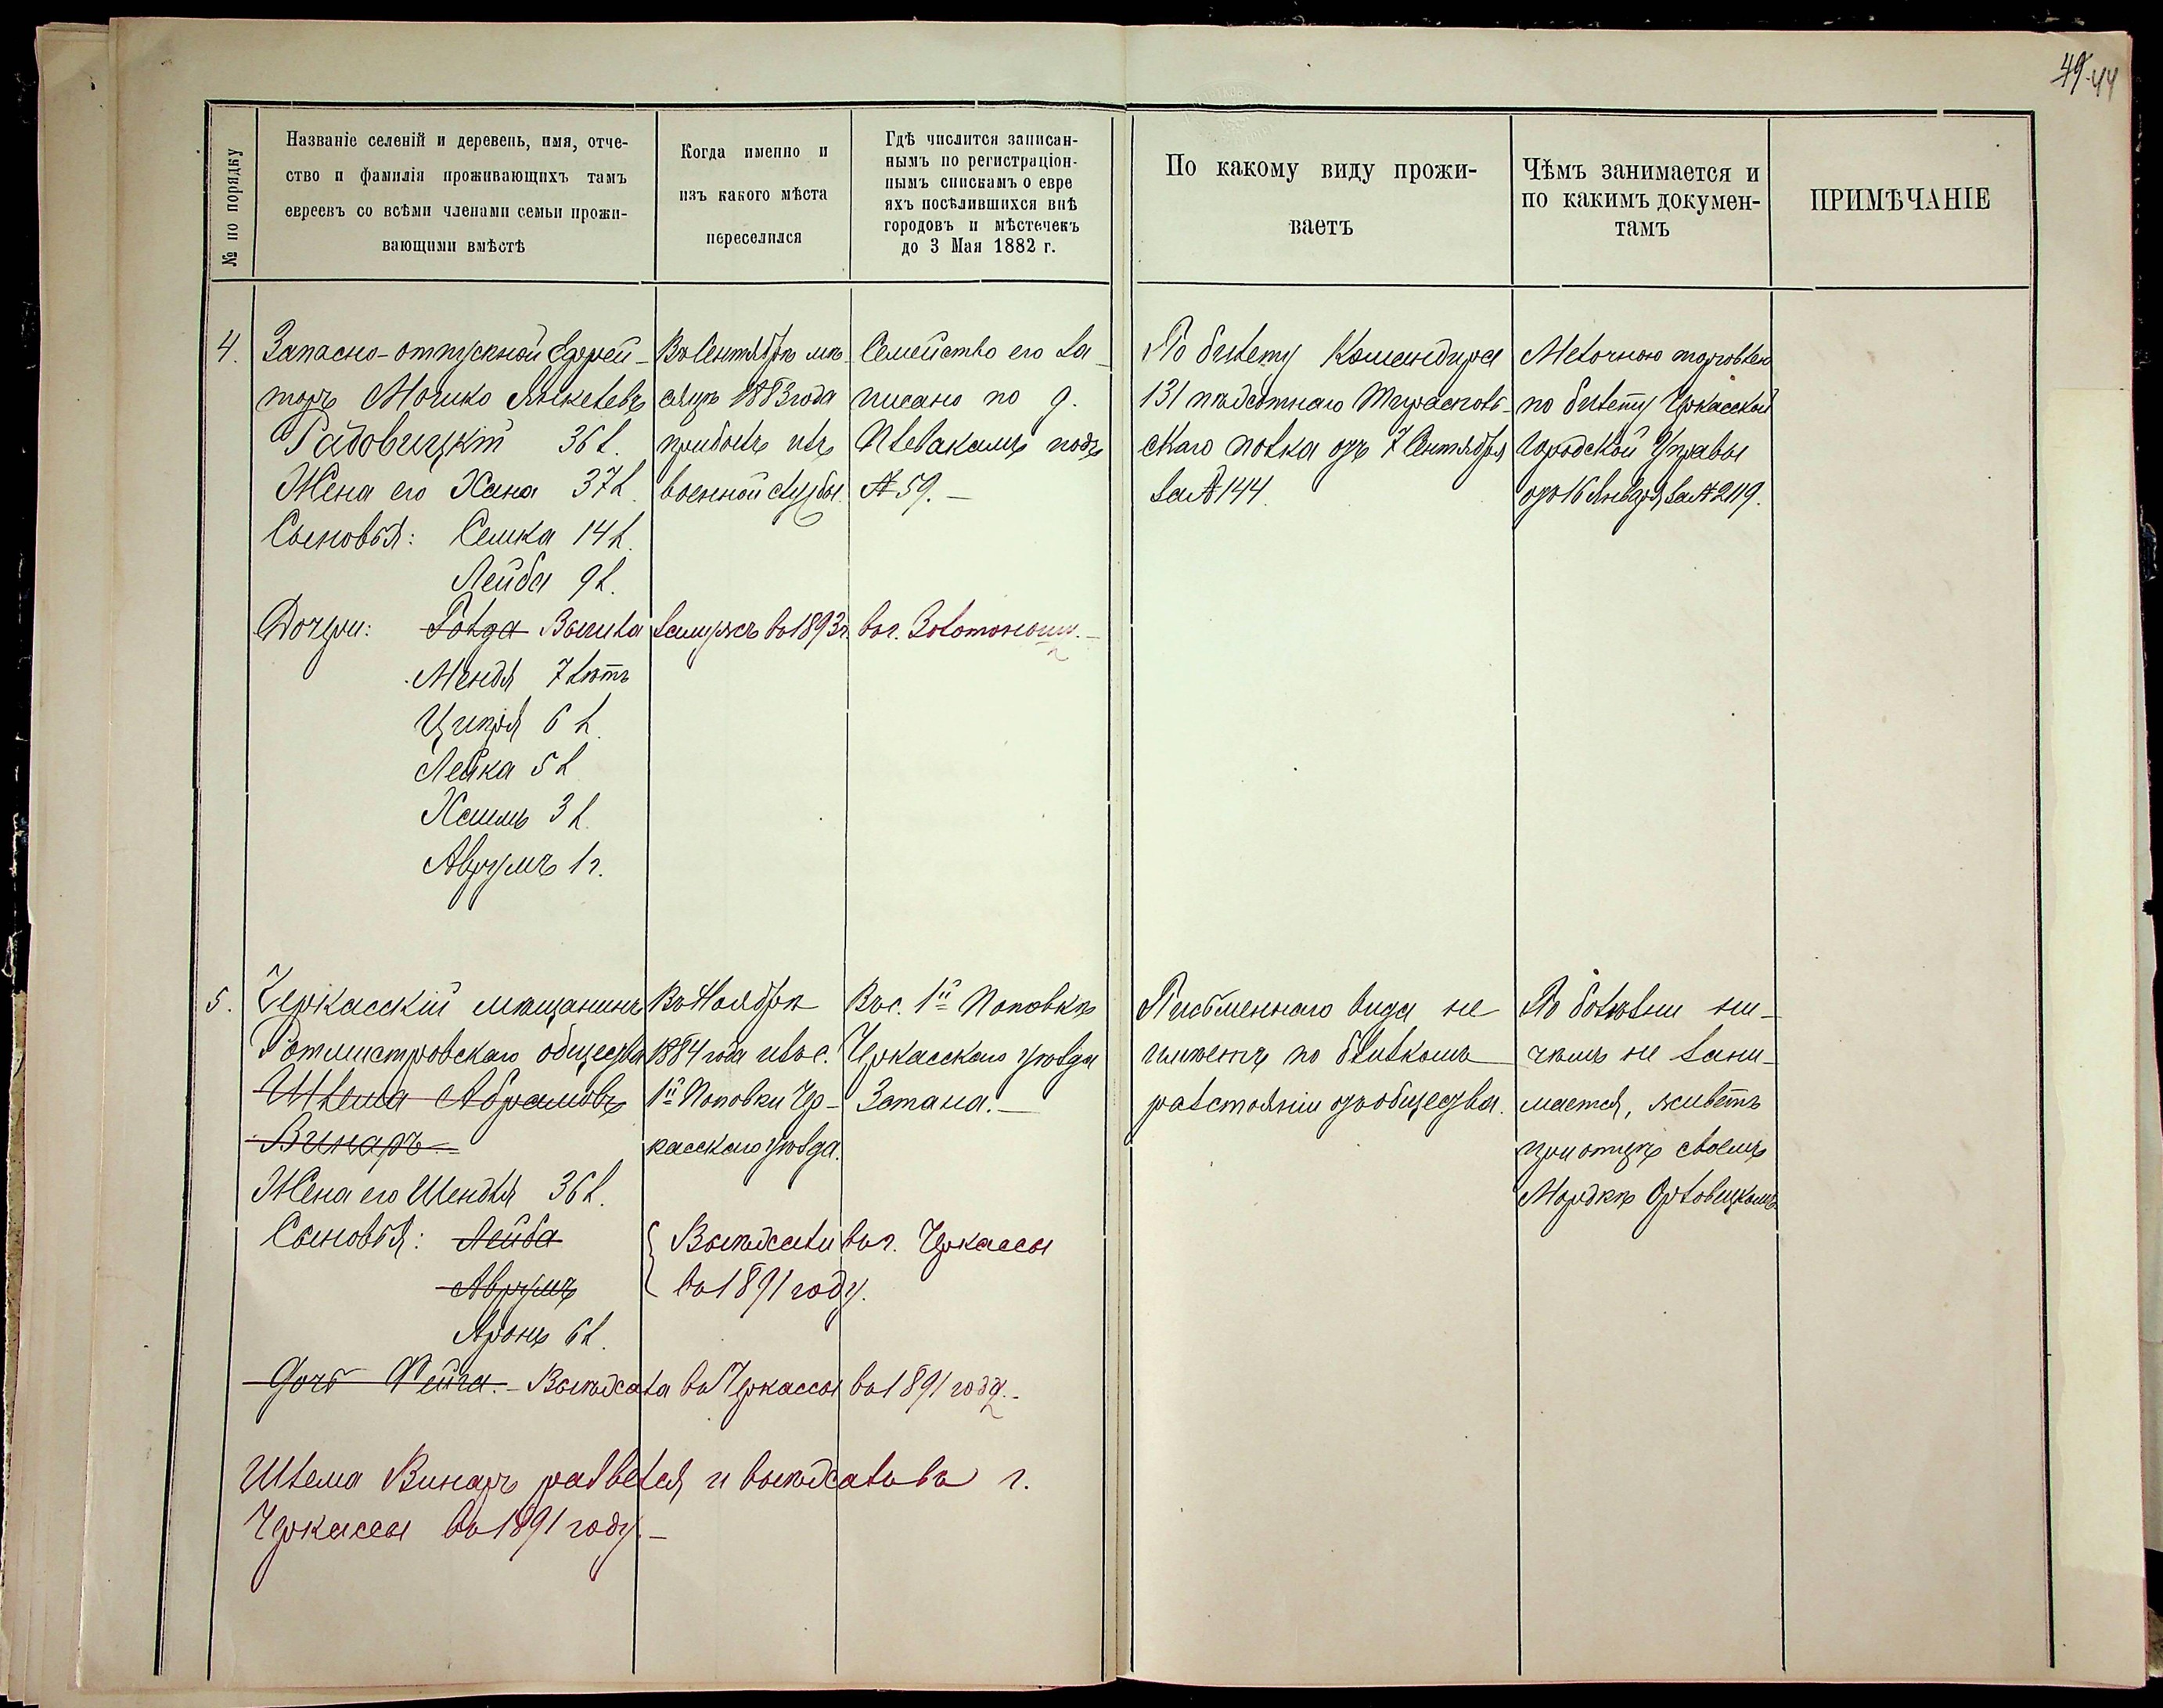 49 44
№ по порядку
Названіе селеній и деревень, имя, отче-
ство и фамилія проживающихъ тамъ
евреевъ со всѣми членами семьи прожи-
вающими вмѣстѣ
Когда именно и
изъ какого мѣста
переселился
Гдѣ числится записан-
нымъ по регистраціон-
нымъ спискамъ о евре
яхъ посѣлившихся внѣ
городовъ и мѣстечекъ
до 3 Мая 1882 г.
По какому виду прожи-
ваетъ
Чѣмъ занимается и
по какимъ докумен-
тамъ
ПРИМѢЧАНІЕ
4.
Запасно-отпускной Ефрей-
торъ Мошко Янкелевъ
Радовицкій 36 л.
Жена его Хана 37 л.
Сыновья: Семка 14 л.
Лейба 9 л.
Дочери: Голда Вышла замужъ въ 1893 г. въ г. Золотоношу.-
Мендя 7 лѣтъ
Ципря 6 л.
Лейка 5 л
Хаимъ 3 л.
Аврумъ 1 г.
Въ Сентябрѣ мѣ-
сяцѣ 1883 года
прибылъ изъ
военной службы.
Семейство его за-
писано по д.
Плевакамъ подъ
№ 59.-
По билету Командира
131 пѣхотнаго Тирасполь-
скаго полка отъ 7 Сентября
за № 144.
Мелочною торговлею
по билету Черкасской
Городской Управы
отъ 16 Января за № 2119.
5.
Черкасскій мѣщанинъ
Ротмистровскаго общества
Шлема Абрамовъ
Винаръ
Жена его Шендля 36 л.
Сыновья: Лейба
Аврумъ
Аронъ 6 л.
Выѣхали въ г. Черкассы
въ 1891 году.
Дочь Фейга.- Выѣхала въ Черкассы въ 1891 году.-
Шлема Винаръ развелся и выѣхалъ въ г.
Черкассы въ 1891 году.-
Въ Ноябрѣ
1884 года изъ с.
1й Поповки Чер-
касскаго уѣзда.
Въ с. 1й Поповкѣ
Черкасскаго уѣзда
Затана.-
Письменнаго вида не
имѣетъ по близкомъ
разстояніи отъ общества.
По болѣзни ни-
чѣмъ не зани-
мается, живетъ
при отцѣ своемъ
Мордкѣ Орловецкомъ